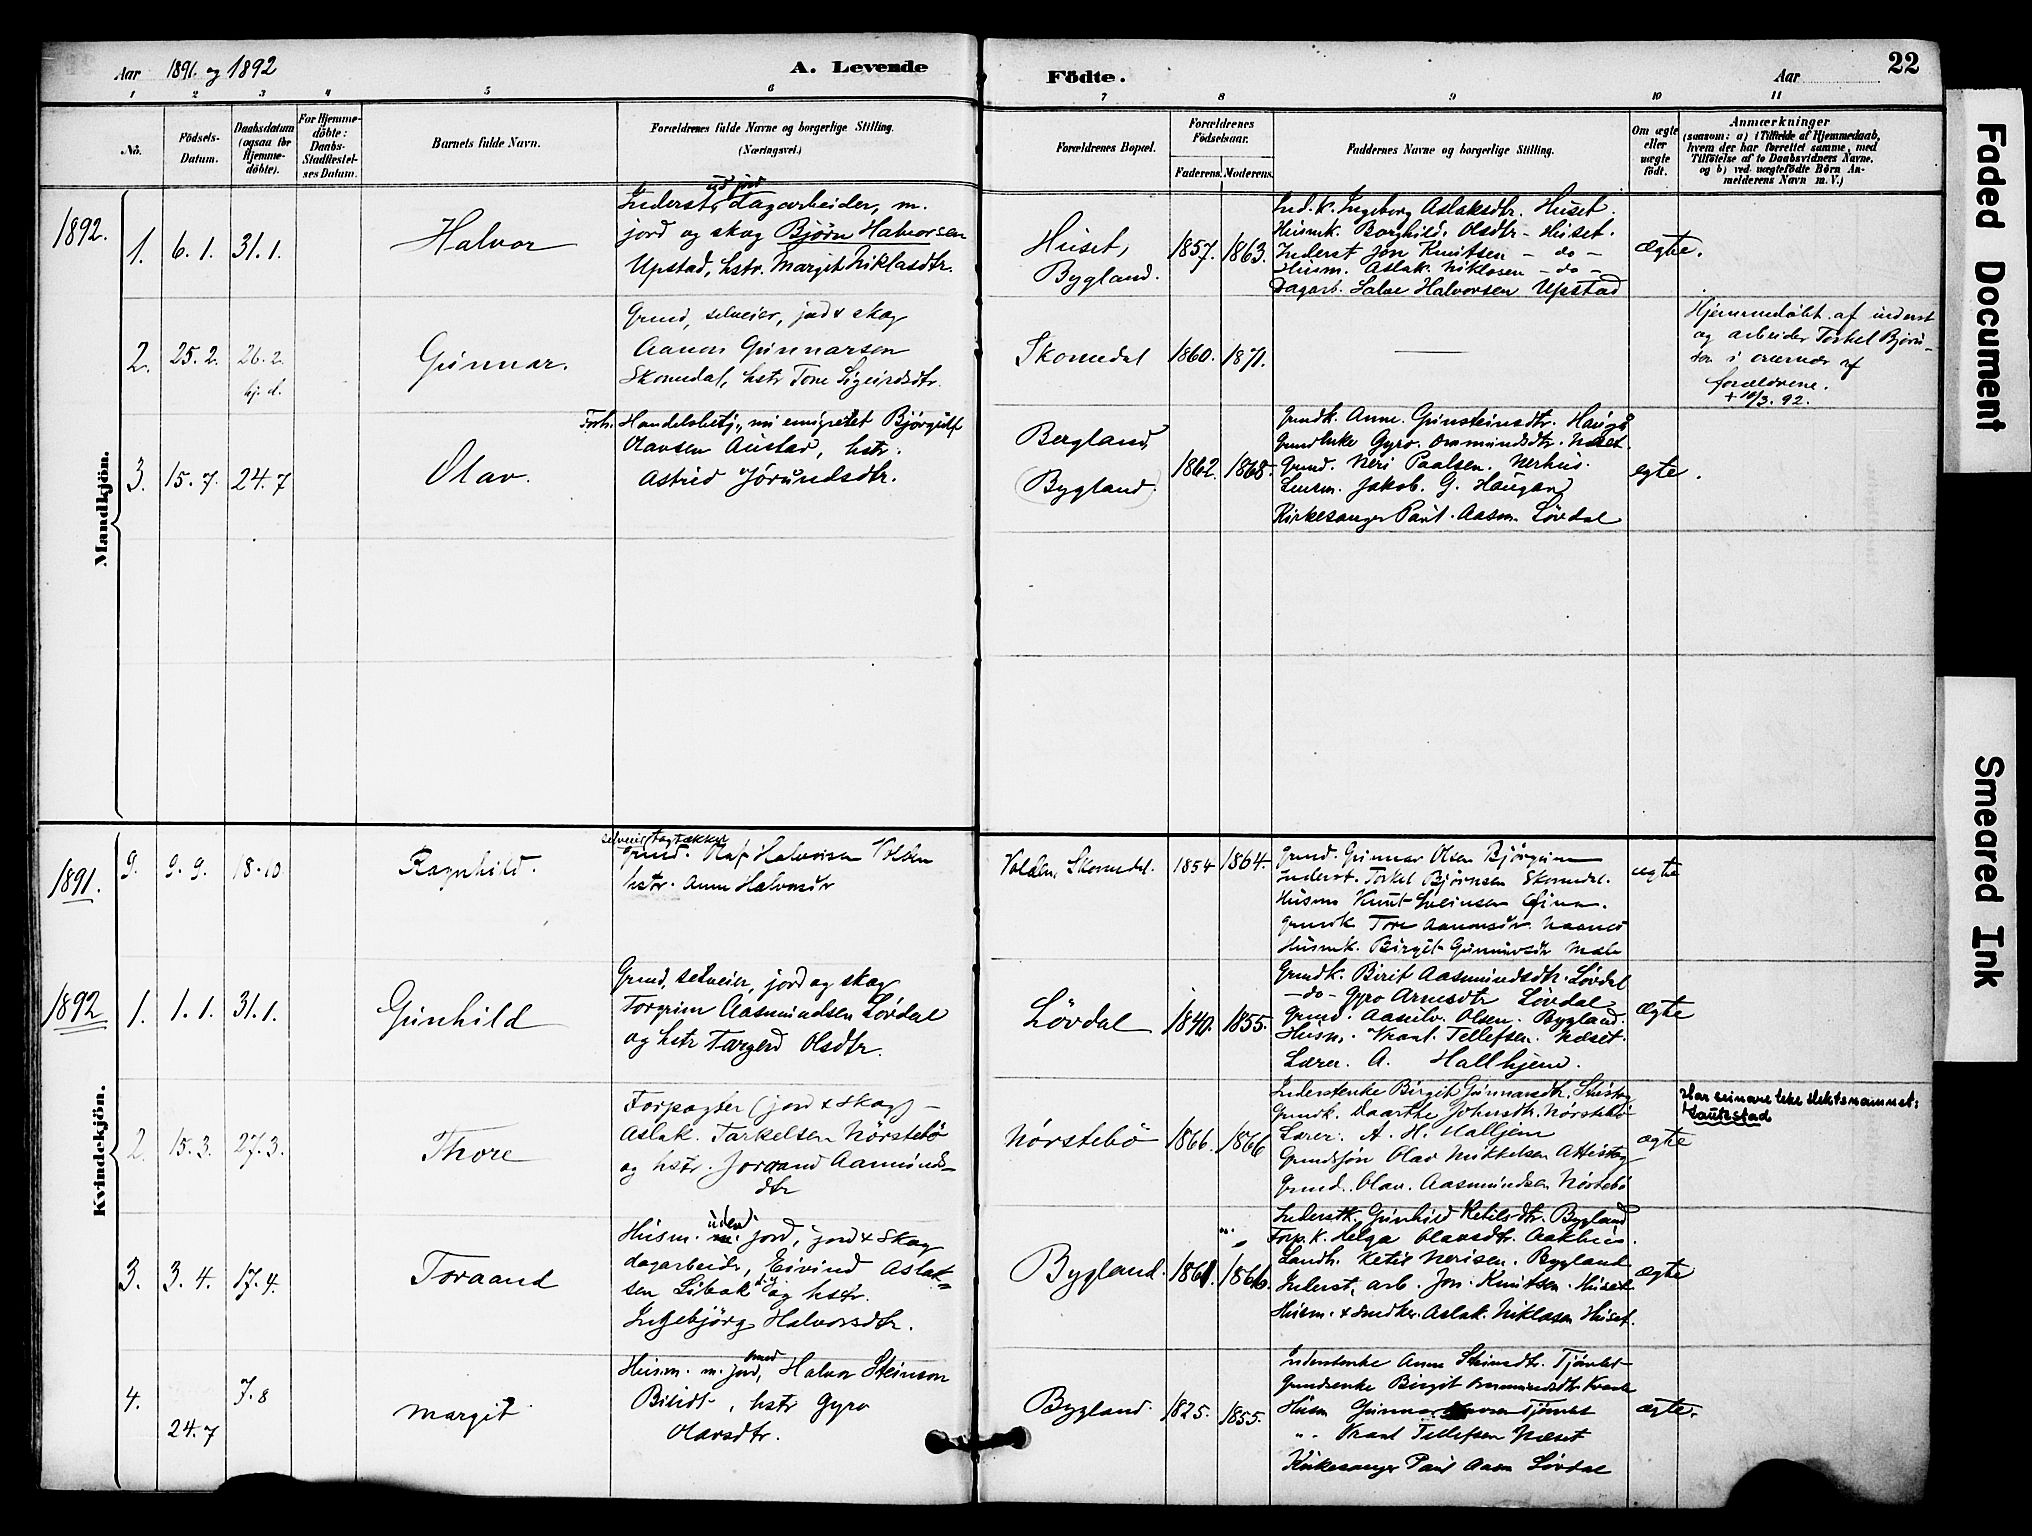 Aar 1891. og 1892
A. Levende
Födte.
Aar
22
1 2 3 4 5 6 7 8 9 10 11
No.
Födsels-
Datum.
Daabsdatum
(ogsaa for
Hjemme-
döbte).
For Hjemme-
döbte:
Daabs-
Stadfæstel-
ses Datum.
Barnets fulde Navn.
Forældrenes fulde Navne og borgerlige Stilling.
(Næringsvei.)
Forældrenes Bopæl.
Forældrenes
Födselsaar.
Faderens. Moderens.
Faddernes Navne og borgerlige Stilling.
Om ægte
eller
uægte
födt.
Anmærkninger
(saasom: a) i Tilfælde af Hjemmedaab,
hvem der har forrettet samme, med
Tilföielse af to Daabsvidners Navne,
og b) ved uægtefödte Börn An-
melderens Navn m. V.)
Mandkjön.
1892.
1. 6.1. 31.1.
Halvor
ud jord
Inderst, Dagarbeider, m.
jord og skog Bjørn Halvorsen
Upstad, hstr. Margit Niklasdtr.
Huset,
Bygland.
1857. 1863.
Ind.k. Ingeborg Aslaksdtr. Huset.
Husmk. Borghild Olsdtr - Huset.
Inderst Jon Knutsen - do -
Husm. Aslak Niklosen - do -
Dagarb. Salve Halvorsen Upstad
ægte.
2. 25.2. 26.2.
hj. d.
Gunnar.
Grund, selveier, jord & skog
Aanon Gunnarsen
Skomedal, hstr Tone Sigurdsdtr.
Skomedal
1860. 1871.
Hjemmedøbt af inderst
og arbeider Torkel Bjørn-
sen i nærvær af
forældrene.
+ 10/3. 92.
3. 15.7. 24.7
Olav.
Forh. Handelsbetj., nu emigreret Bjørgulf
Olavsen Austad, hstr.
Astrid Jørundsdtr.
Bergland,
(Bygland.)
1862. 1868.
Grundk. Anne Gunsteinsdtr.
Grundenke Gyro Ommundsdtr. Næset.
Grund. Neri Paalsen. Nerhus.
Lensm. Jakob. G. Haugan
Kirkesanger Paul Aasm. Løvdal
egte.
Kvindekjön.
1891.
9. 9.9. 18.10
Ragnhild.
selveier, tagtækker
Grund. Olaf Halvorsen Volden
hstr. Anne Halvorsdtr
Volden, Skomedal.
1854 1864.
Grund. Gunnar Olsen Bjørgum
Inderst. Torkel Bjørnsen Skomedal.
Husm Knut Sveinsen
Grundk Tore Aanonsdtr
Husmk. Birgit Gunnarsdtr
ægte
1892
1. 1.1. 31.1.
Gunhild
Grund, selveier, jord og skog
Torgrim Aasmundsen Løvdal
og hstr Targerd Olsdtr.
Løvdal
1840. 1855.
Grundk. Birit Aasmundsdtr. Løvdal
- do - Gyro Arnesdtr Løvdal
Grund. Aasulv Olsen. Bygland.
Husm. Knut Tellefsen. Næset.
Lærer. A. Hallhjem.
ægte
2. 15.3. 27.3.
Thore
Forpagter (jord & skog) -
Aslak Tarkelsen Nørstebø
og hstr. Joraand Aanunds-
dtr
Nørstebø
1866. 1866
Inderstenke Birgit Gunnarsdtr.
Grundk. Daarthe Johnsdtr. Nørstebø
Lærer. A. H. Halljem
Grundsøn Olav Mikkelsen
Grund. Olav Aasmundsen Nørstebø
ægte
Har seinare teke slektsnamnet:
Hautestad
3. 3.4. 17.4.
Toraand
Husm. uden jord, jord & skog
dagarbeidr, Eivind Aslak-
sen Libakk og hstr.
Ingebjörg Halvorsdtr.
Bygland.
1861. 1866.
Inderstk. Gunhild Ketilsdtr. Bygland
Forp.k. Helga Olavsdtr. Aakhus.
Landh. Ketil Nerisen. Bygland
Inderst, arb. Jon Knutsen. Huset
Husm. & snedker. Aslak Niklosen Huset.
ægte
4. 24.7 7.8
Margit
Husm. m. jord, Halvor Steinson
, hstr Gyro
Olavsdtr.
Bygland.
1825. 1855.
Inderstenke Anne Steinsdtr.
Grundenke Birgit Ommundsdtr
Husm Gunnar
" Knut Tellefsen Næset
Kirkesanger Paul Aasm Løvdal
ægte.
Faded Document
Smeared Ink